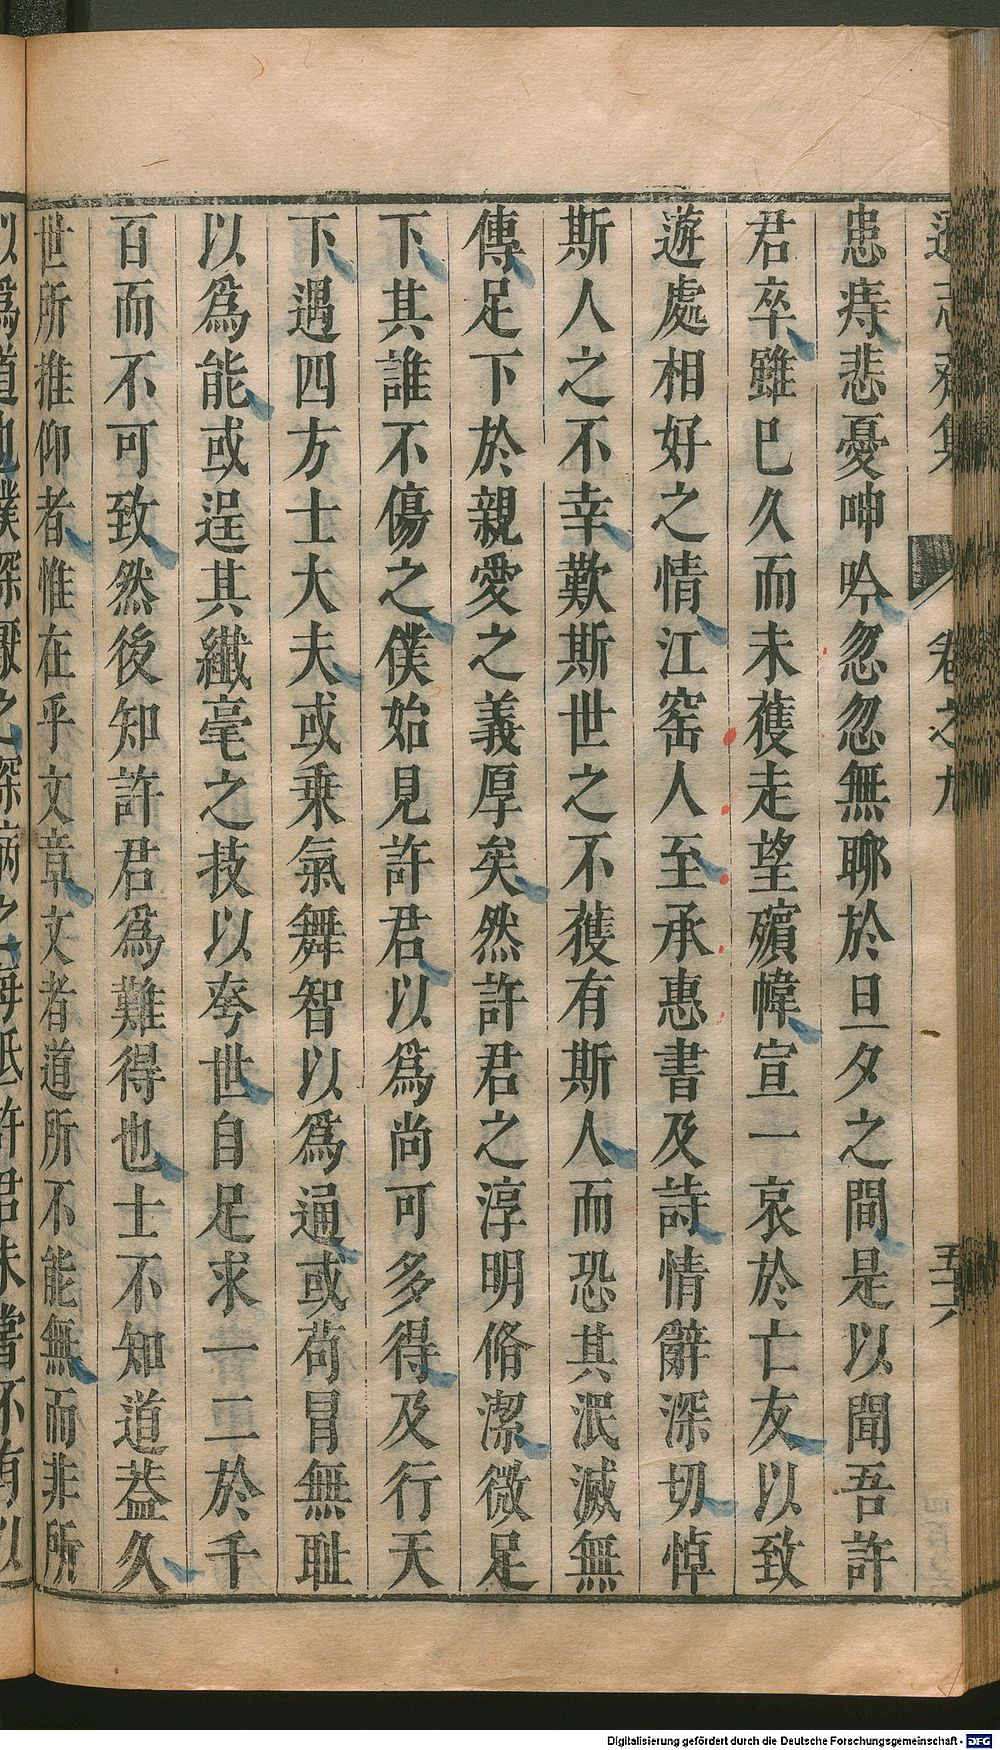 遜志齋集 卷之九 五十六
患痔悲憂呻吟忽忽無聊於旦夕之間是以聞吾許
君卒雖已久而未獲走望殯幃宣一哀於亡友以致
遊處相好之情江窑人至承惠書及詩情辭深切悼
斯人之不幸歎斯世之不獲有斯人而恐其泯滅無
傳足下於親愛之義厚矣然許君之淳明脩潔微足
下其誰不傷之僕始見許君以爲尚可多得及行天
下遇四方士大夫或乗氣舞智以爲通或苟冒無耻
以爲能或逞其纖毫之技以夸世自足求一二於千
百而不可致然後知許君爲難得也士不知道葢久
世所推仰者惟在乎文章文者道所不能無而非所
以爲道也僕深厭之深病之每祗許君未嘗不有以
Digitalisierung gefördert durch die Deutsche Forschungsgemeinschaft - DFG